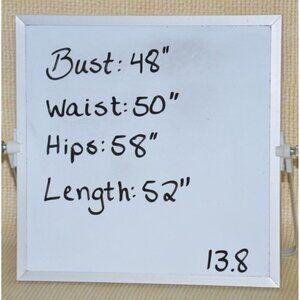 Bust: 48"
Waist: 50"
Hips: 58"
Length: 52"
13.8